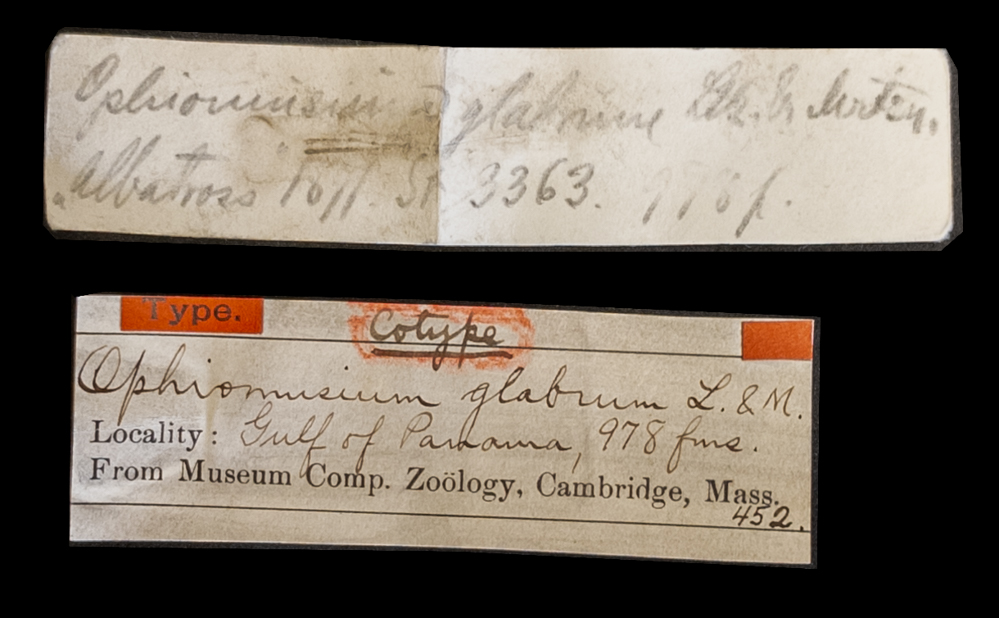 Ophiomusium glabrum Ltk. & Mrtsn.
"Albatross" 1891. St 3363. 978 f.
Type.
Cotype
Ophiomusium glabrum L. & M.
Locality: Gulf of Panama, 978 fms.
From Museum Comp. Zoölogy, Cambridge, Mass.
452.